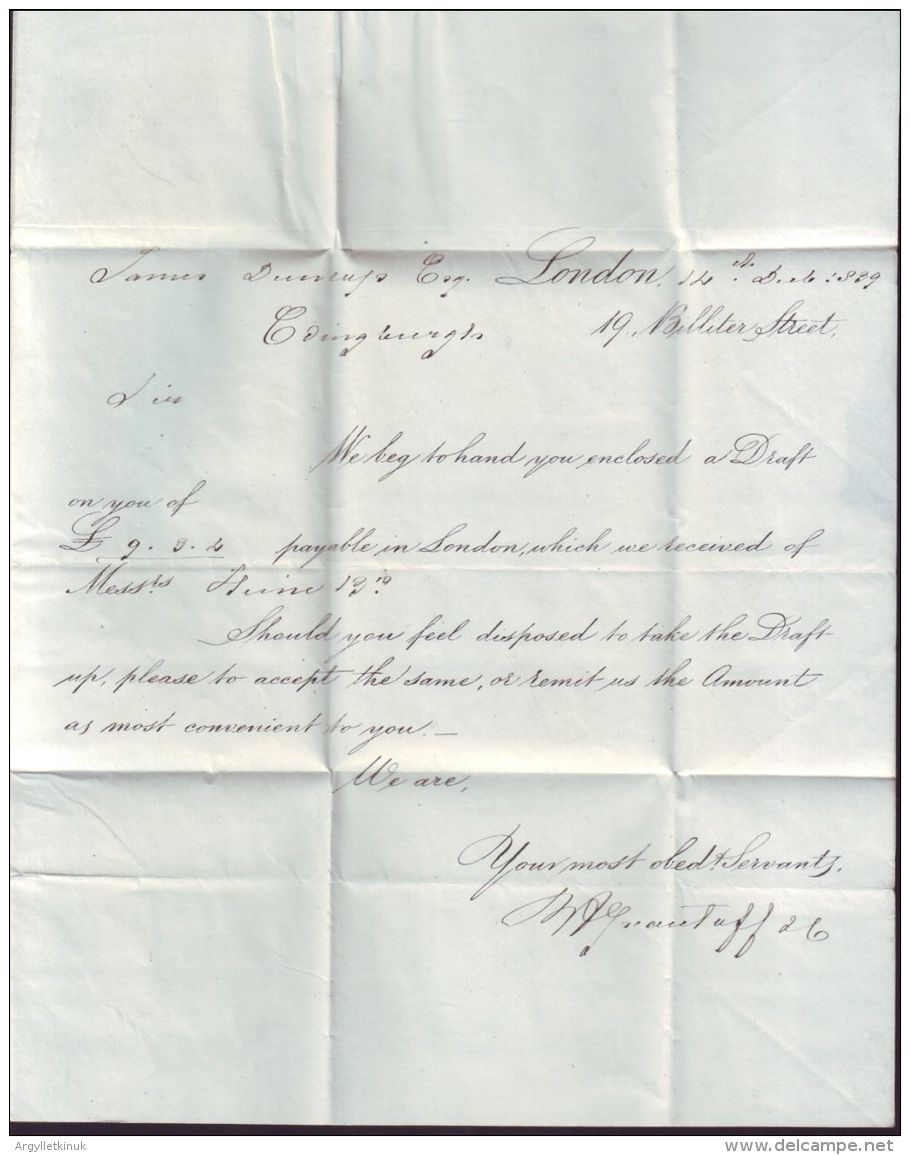 James Dunlap Esq. London, 14th Dec. 1839
Edingburgh 19, Billiter Street,
Sir
We beg to hand you enclosed a Draft
on you of
£ 9. 3. 2 payable in London, which we received of
Messrs
Should you feel disposed to take the Draft
up, please to accept the same, or remit us the Amount
as most convenient to you. —
We are,
Your most obedt. Servants,
Grautoff & C
Argylletkinuk
www.delcampe.net